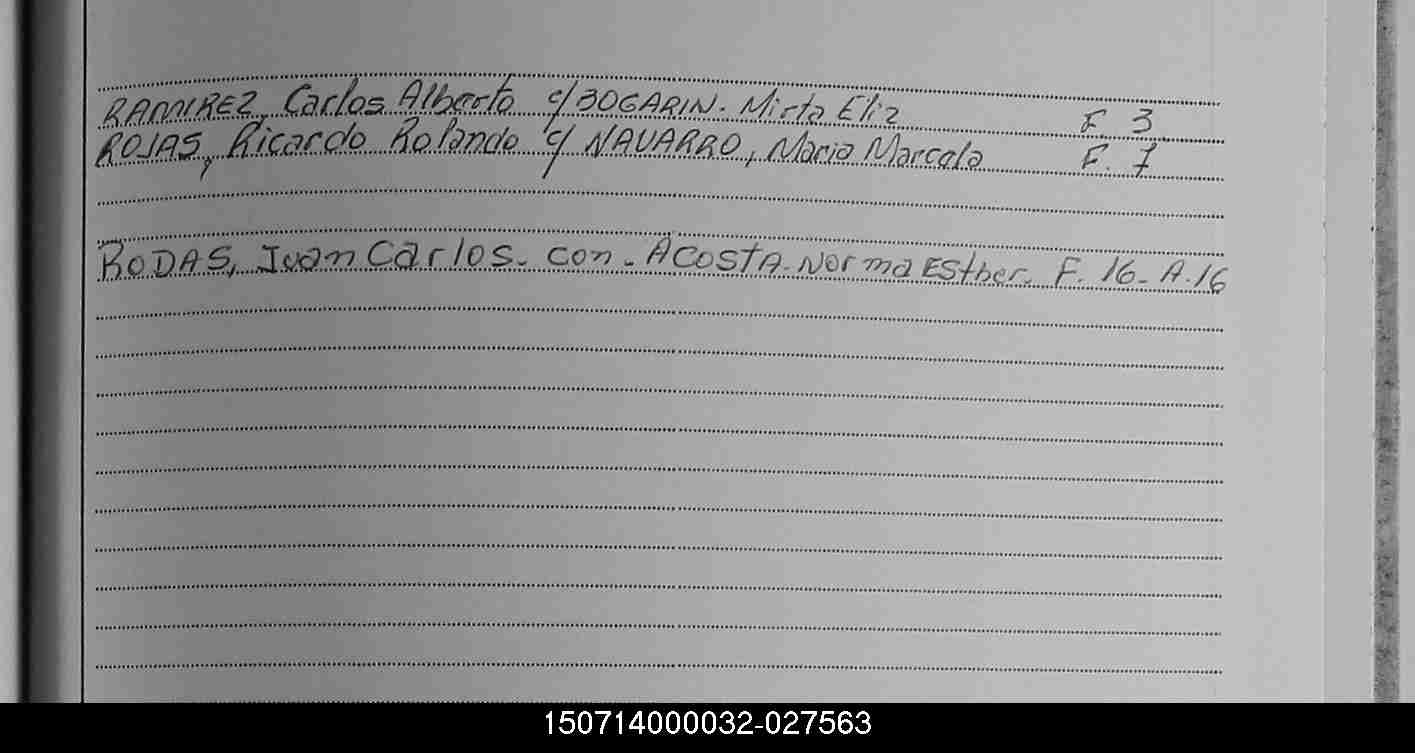 RAMIREZ, Carlos Alberto c/ BOGARIN. Mirta Eliz F. 3
ROJAS, Ricardo Rolando c/ NAVARRO, Maria Marcela F. 7
RODAS, Juan Carlos. con. ACOSTA. Norma Esther. F. 16. A. 16
150714000032-027563